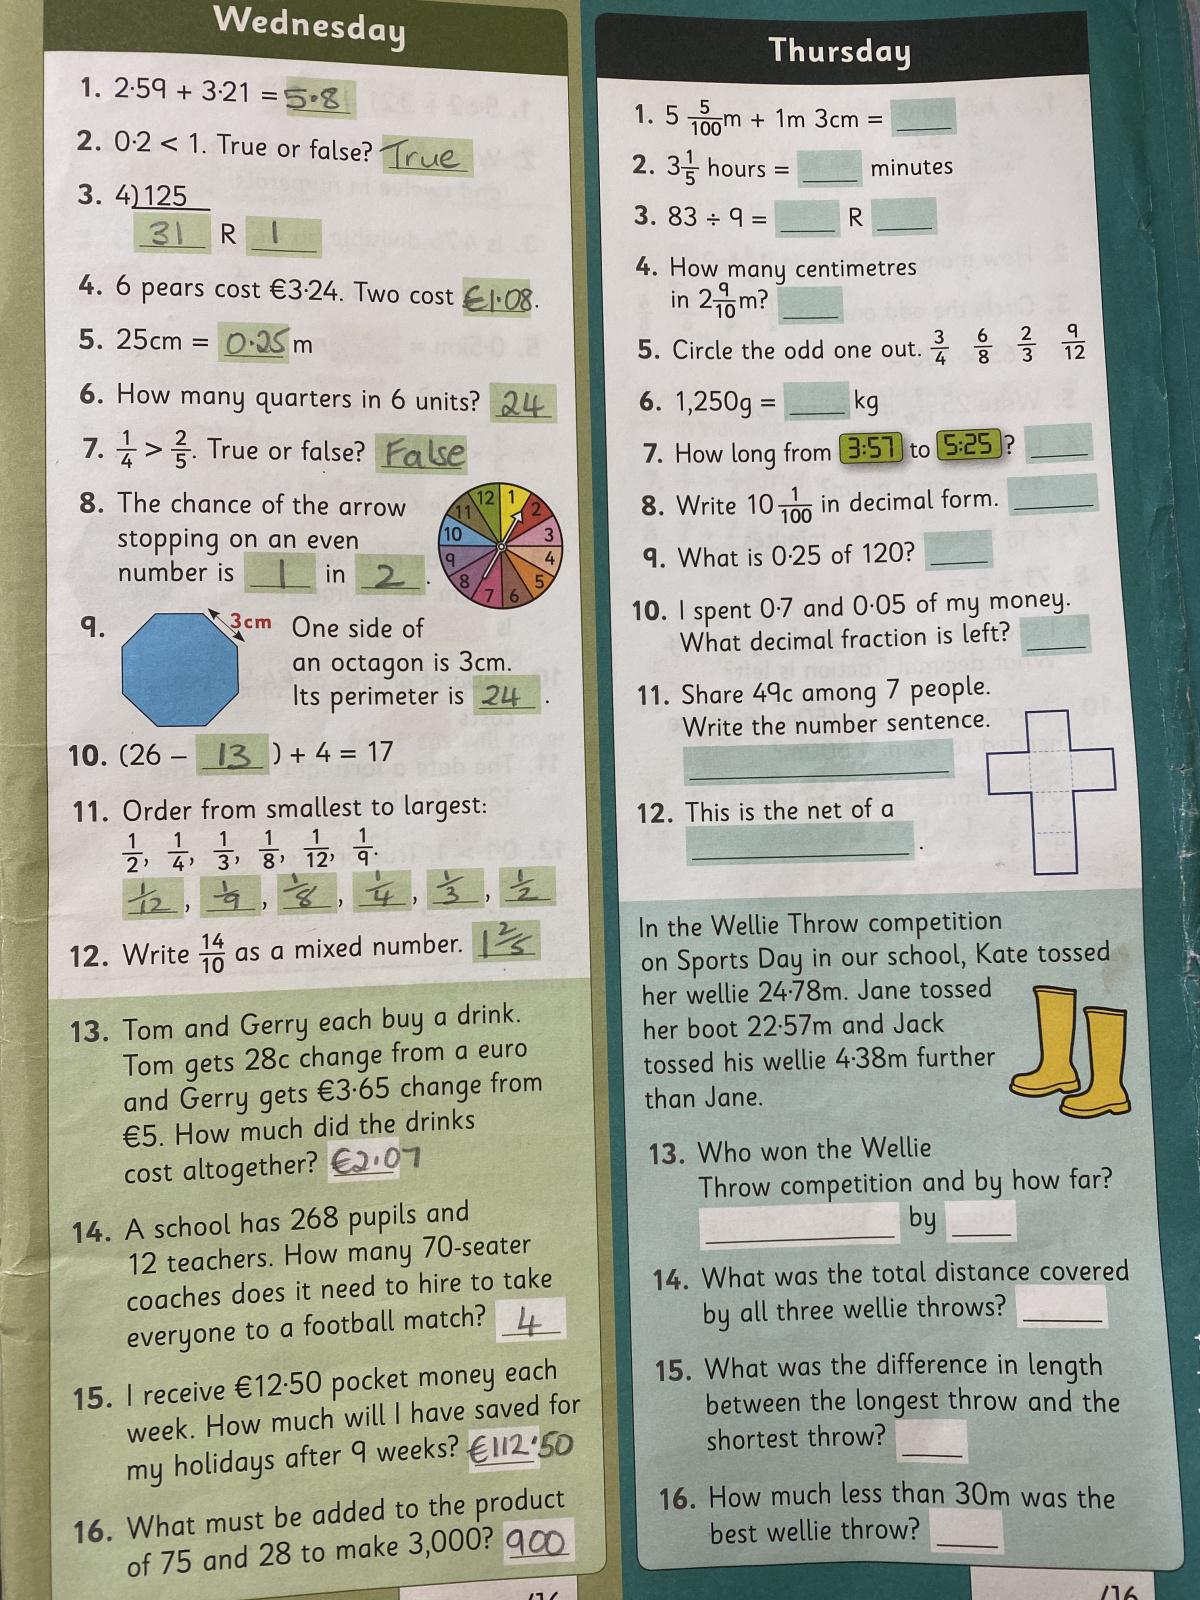 Wednesday
1. 2·59 + 3·21 = 5·8
2. 0·2 < 1. True or false? True
3. 4)125
31 R 1
4. 6 pears cost €3·24. Two cost €1·08.
5. 25cm = 0·25 m
6. How many quarters in 6 units? 24
7. 1/4 > 2/5. True or false? False
8. The chance of the arrow
stopping on an even
number is 1 in 2.
12 1 2 3 4 5 6 7 8 9 10 11
9. 3cm One side of
an octagon is 3cm.
Its perimeter is 24.
10. (26 – 13) + 4 = 17
11. Order from smallest to largest:
1/2, 1/4, 1/3, 1/8, 1/12, 1/9.
1/12, 1/9, 1/8, 1/4, 1/3, 1/2
12. Write 14/10 as a mixed number. 1 2/5
13. Tom and Gerry each buy a drink.
Tom gets 28c change from a euro
and Gerry gets €3·65 change from
€5. How much did the drinks
cost altogether? €2·07
14. A school has 268 pupils and
12 teachers. How many 70-seater
coaches does it need to hire to take
everyone to a football match? 4
15. I receive €12·50 pocket money each
week. How much will I have saved for
my holidays after 9 weeks? €112·50
16. What must be added to the product
of 75 and 28 to make 3,000? 900
/16
Thursday
1. 5 5/100m + 1m 3cm =
2. 3 1/5 hours = minutes
3. 83 ÷ 9 = R
4. How many centimetres
in 2 9/10m?
5. Circle the odd one out. 3/4 6/8 2/3 9/12
6. 1,250g = kg
7. How long from 3:57 to 5:25?
8. Write 10 1/100 in decimal form.
9. What is 0·25 of 120?
10. I spent 0·7 and 0·05 of my money.
What decimal fraction is left?
11. Share 49c among 7 people.
Write the number sentence.
12. This is the net of a
.
In the Wellie Throw competition
on Sports Day in our school, Kate tossed
her wellie 24·78m. Jane tossed
her boot 22·57m and Jack
tossed his wellie 4·38m further
than Jane.
13. Who won the Wellie
Throw competition and by how far?
by
14. What was the total distance covered
by all three wellie throws?
15. What was the difference in length
between the longest throw and the
shortest throw?
16. How much less than 30m was the
best wellie throw?
/16